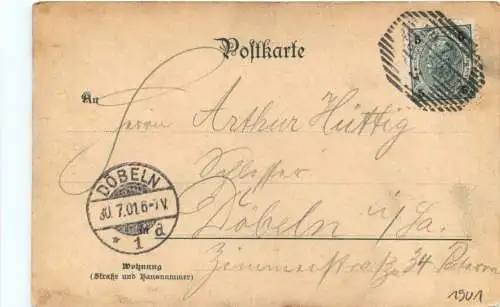 Postkarte
An
Herrn Arthur Hüttig
Schlosser
Döbeln i/Sa.
Zimmerstraße 34
DÖBELN
30.7.01.6-7V.
* 1 d
Wohnung
(Straße und Hausnummer)
1901